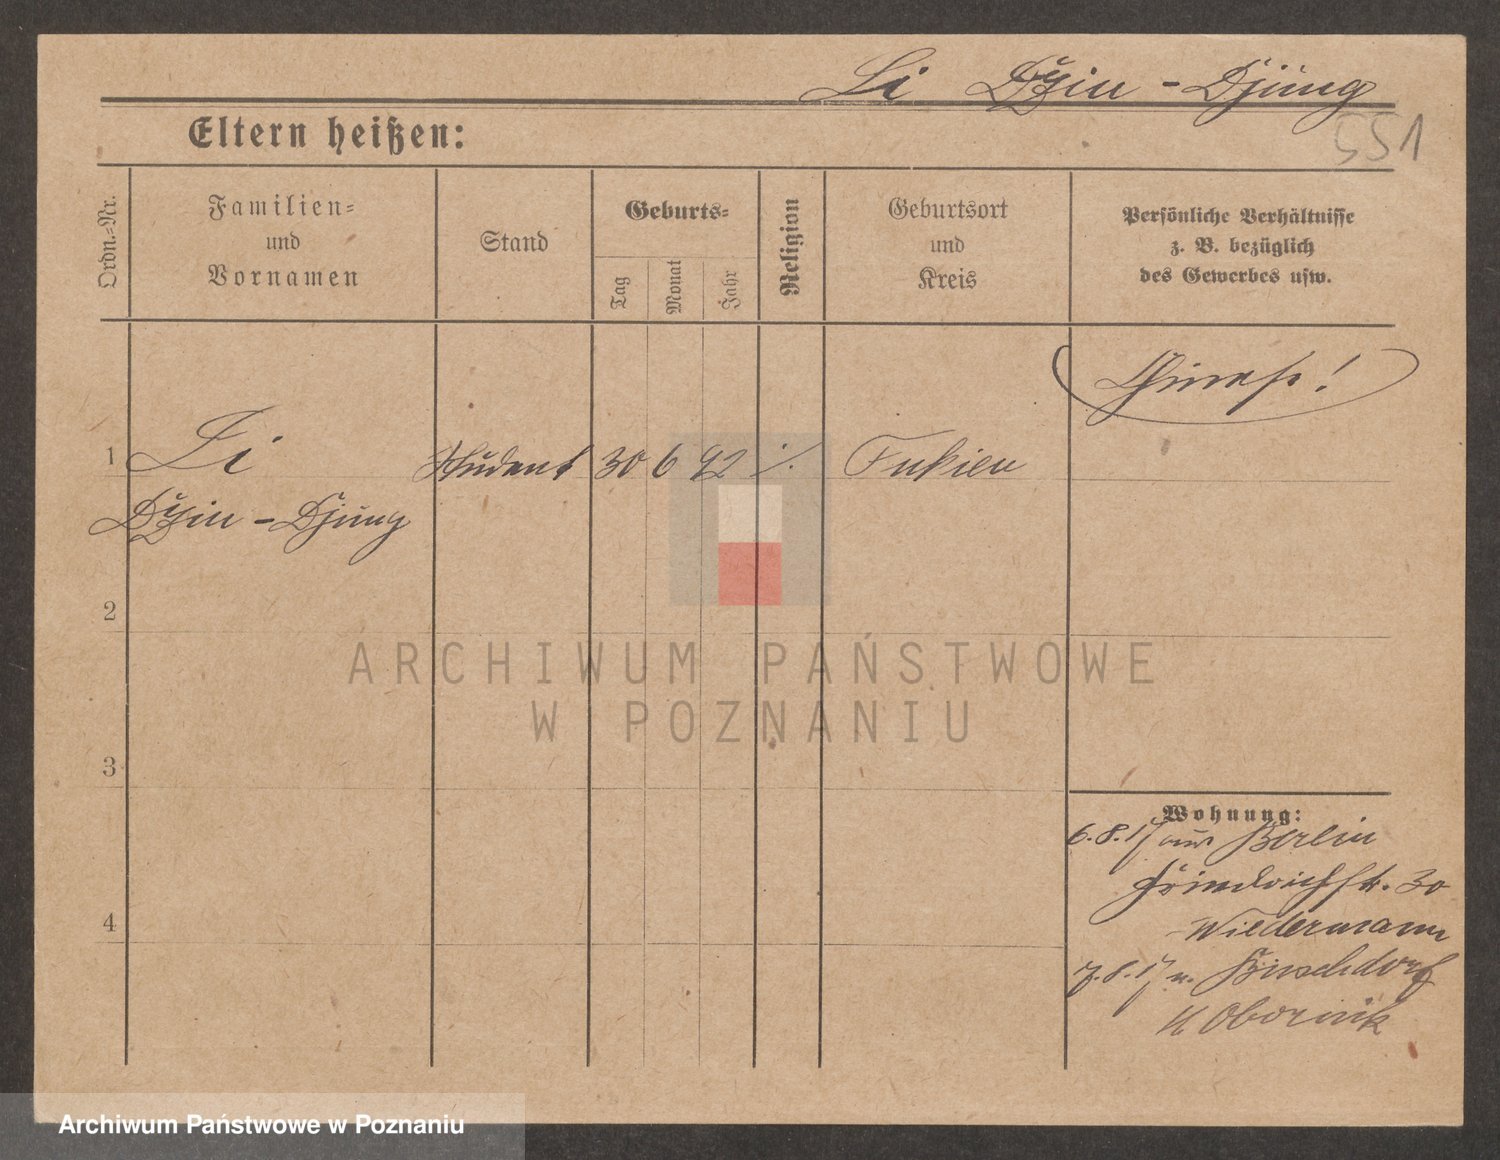 Li Dzin-Djüng
551
Eltern heißen:
Ordn.-Nr.
Familien-
und
Vornamen
Stand
Geburts-
Tag
Monat
Jahr
Religion
Geburtsort
und
Kreis
Persönliche Verhältnisse
z. B. bezüglich
des Gewerbes usw.
Chinese!
1 Li Student 30 6 92 ./. Fukien
Dzin-Djüng
2
3
4
Wohnung:
6.8.17 aus Berlin
Friedrichstr. 30
Wiedermann
7.8.17 n.
Obornik
ARCHIWUM PAŃSTWOWE
W POZNANIU
Archiwum Państwowe w Poznaniu